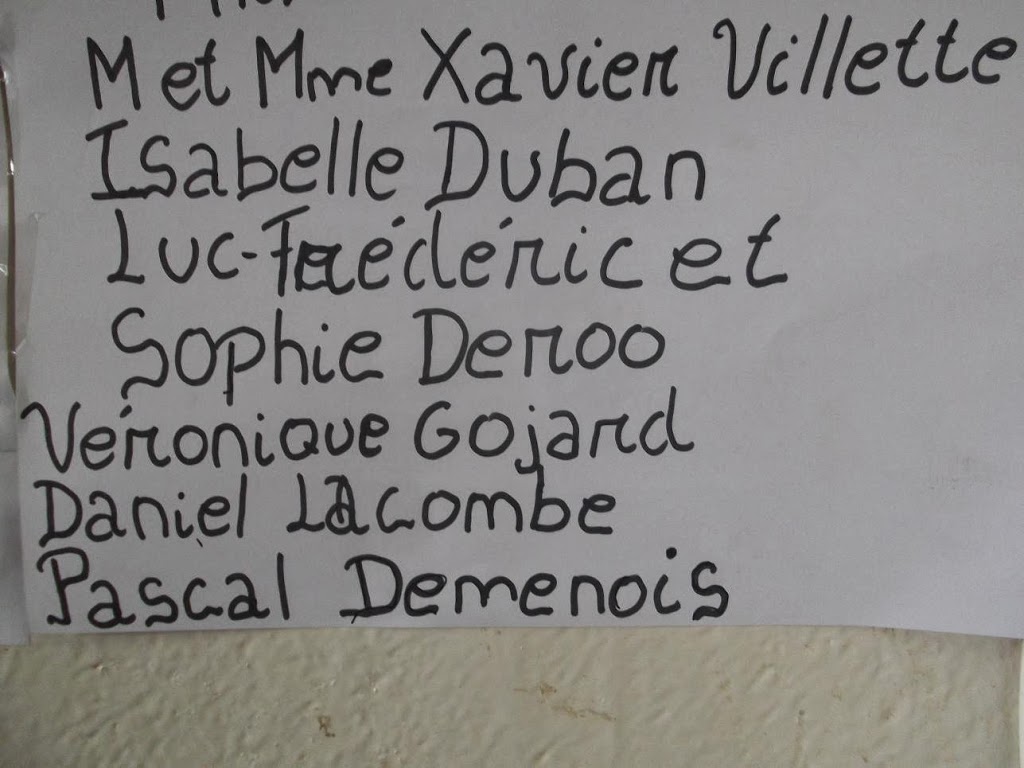 M et Mme Xavier Villette
Isabelle Duban
Luc-Frédéric et
Sophie Deroo
Véronique Gojard
Daniel Lacombe
Pascal Demenois